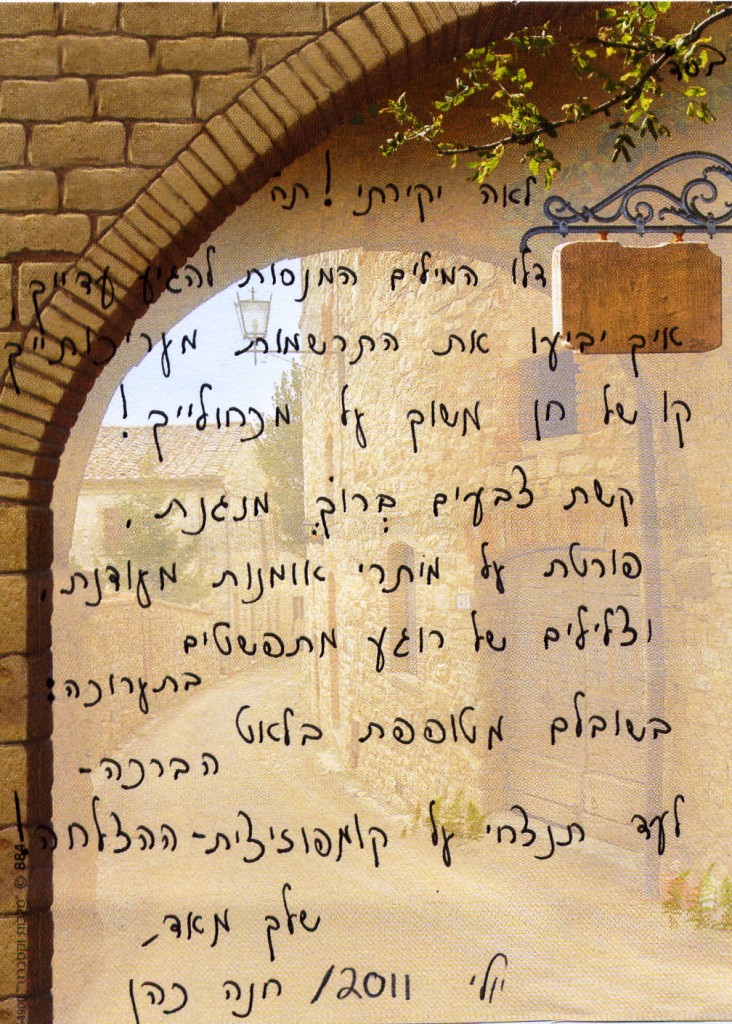 בסד
לאה יקירתי! תח'
דלו המילים המנסות להגיע עדייך,
איך יביעו את התרשמות מעריכותייך
קו של חן משוך על מכחולייך!
קשת צבעים בְּרוֹךְ מנגנת,
פורטת על מיתרי אומנות מעודנת,
וצלילים של רוגע מתפשטים
בתערוכה:
בשובלם מטופפת בלאט
הברכה-
לעד תנצחי על קומפוזיצית-ההצלחה!
שלך מאד,
יולי 2011/ חנה כהן
884 ©